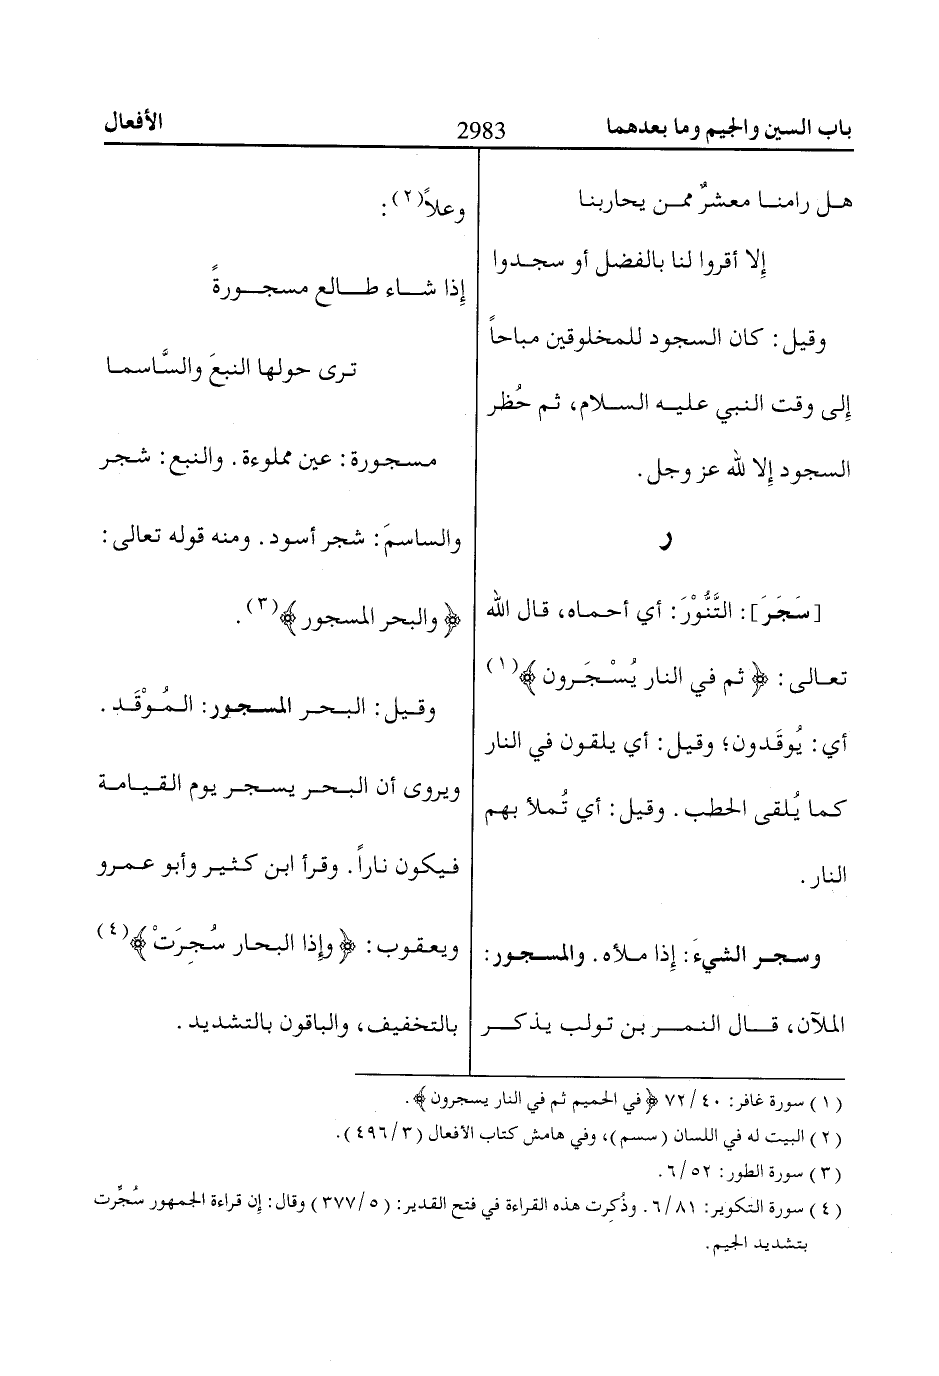 باب السين والجيم وما بعدهما 2983 الأفعال
هـل رامنـا معشرٌ ممـن يحاربنا
إلا أقروا لنا بالفضل أو سجـدوا
وقيل: كان السجود للمخلوقين مباحاً
إلى وقت النبي عليه السلام، ثم حُظر
السجود إلا لله عز وجل.
ر
[سَجَرَ]: التَّنُّوْرَ: أي أحماه، قال الله
تعالى: ﴿ثم في النار يُسْجَرون﴾(١)
أي: يُوقَدون؛ وقيل: أي يلقون في النار
كما يُلقى الحطب. وقيل: أي تُملأ بهم
النار.
وسجر الشيءَ: إذا ملأه. والمسجور:
الملآن، قال النمر بن تولب يذكر
وعلاً(٢):
إذا شـاء طـالع مسجـورةً
ترى حولها النبعَ والسَّاسما
مسجورة: عين مملوءة. والنبع: شجر
والساسمَ: شجر أسود. ومنه قوله تعالى:
﴿والبحر المسجور﴾(٣).
وقيل: البحر المسجور: المُوْقَد.
ويروى أن البحر يسجر يوم القيامة
فيكون ناراً. وقرأ ابن كثير وأبو عمرو
ويعقوب: ﴿وإذا البحار سُجِرَتْ﴾(٤)
بالتخفيف، والباقون بالتشديد.
(١) سورة غافر: ٤٠/ ٧٢ ﴿في الحميم ثم في النار يسجرون﴾.
(٢) البيت له في اللسان (سسم)، وفي هامش كتاب الأفعال (٣/ ٤٩٦).
(٣) سورة الطور: ٥٢/ ٦.
(٤) سورة التكوير: ٨١/ ٦. وذُكرت هذه القراءة في فتح القدير: (٥/ ٣٧٧) وقال: إن قراءة الجمهور سُجِّرت
بتشديد الجيم.